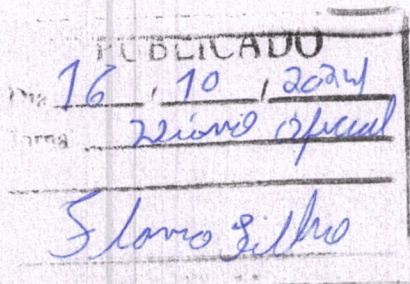 PUBLICADO
Dia 16 / 10 / 2024
Jornal Diário Oficial
Flavio Filho